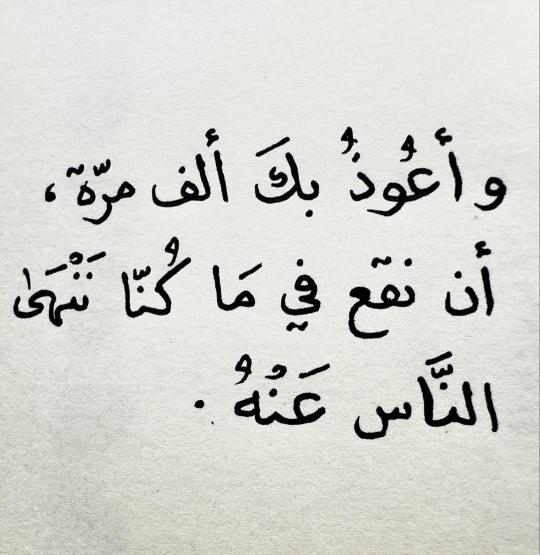 وأعُوذُ بكَ ألف مرّة،
أن نقع في مَا كُنّا نَنْهَىٰ
النَّاس عَنْهُ.